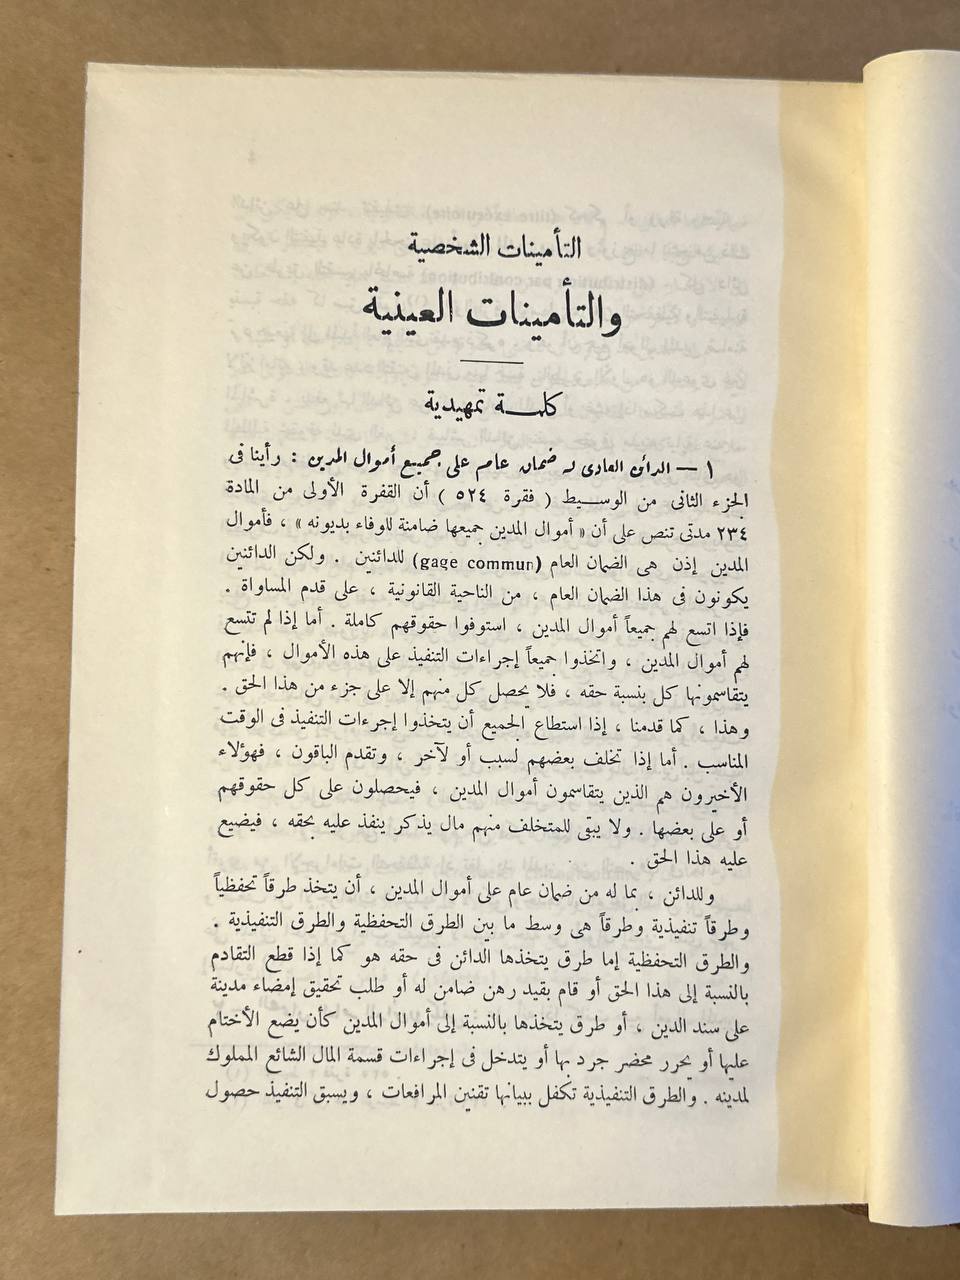 التأمينات الشخصية
والتأمينات العينية
كلمة تمهيدية
١ — الدائن العادى له ضمان عام على جميع أموال المدين : رأينا فى
الجزء الثانى من الوسيط ( فقرة ٥٢٤ ) أن الققرة الأولى من المادة
٢٣٤ مدنى تنص على أن « أموال المدين جميعها ضامنة للوفاء بديونه » ، فأموال
المدين إذن هى الضمان العام (gage commun) للدائنين . ولكن الدائنين
يكونون فى هذا الضمان العام ، من الناحية القانونية ، على قدم المساواة .
فإذا اتسع لهم جميعاً أموال المدين ، استوفوا حقوقهم كاملة . أما إذا لم تتسع
لهم أموال المدين ، واتخذوا جميعاً إجراءات التنفيذ على هذه الأموال ، فإنهم
يتقاسمونها كل بنسبة حقه ، فلا يحصل كل منهم إلا على جزء من هذا الحق .
وهذا ، كما قدمنا ، إذا استطاع الجميع أن يتخذوا إجرءات التنفيذ فى الوقت
المناسب . أما إذا تخلف بعضهم لسبب أو لآخر ، وتقدم الباقون ، فهؤلاء
الأخيرون هم الذين يتقاسمون أموال المدين ، فيحصلون على كل حقوقهم
أو على بعضها . ولا يبقى للمتخلف منهم مال يذكر ينفذ عليه بحقه ، فيضيع
عليه هذا الحق .
وللدائن ، بما له من ضمان عام على أموال المدين ، أن يتخذ طرقاً تحفظياً
وطرقاً تنفيذية وطرقاً هى وسط ما بين الطرق التحفظية والطرق التنفيذية .
والطرق التحفظية إما طرق يتخذها الدائن فى حقه هو كما إذا قطع التقادم
بالنسبة إلى هذا الحق أو قام بقيد رهن ضامن له أو طلب تحقيق إمضاء مدينة
على سند الدين ، أو طرق يتخذها بالنسبة إلى أموال المدين كأن يضع الأختام
عليها أو يحرر محضر جرد بها أو يتدخل فى إجراءات قسمة المال الشائع المملوك
لمدينه . والطرق التنفيذية تكفل ببيانها تقنين المرافعات ، ويسبق التنفيذ حصول